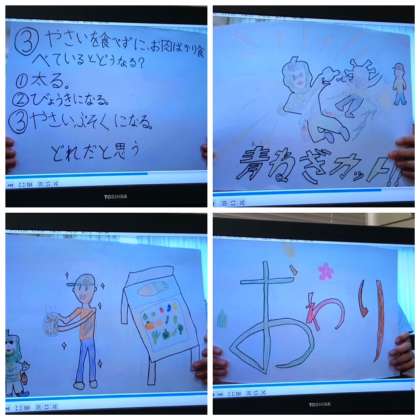 ③やさいを食べずに、お肉ばかり食
べているとどうなる?
①太る。
②びょうきになる。
③やさいぶそくになる。
どれだと思う
TOSHIBA
青ねぎカット!!
おわり
TOSHIBA